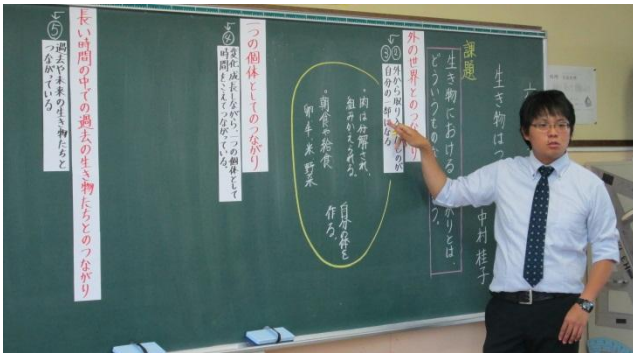 生き物はつ
中村桂子
課題
生き物における
がりとは、
どういうもの
う。
外の世界とのつ
がり
②外から取り
ものが
③自分の一部になる
・肉は分解され、
組みかえられる。
・朝食や給食
卵 牛 米 野菜
自分の体を
作る。
一つの個体としてのつながり
④変化成長しながら、一つの個体として
時間をこえてつながっている。
長い時間の中での過去の生き物たちとのつながり
⑤過去や未来の生き物たちと
つながっている